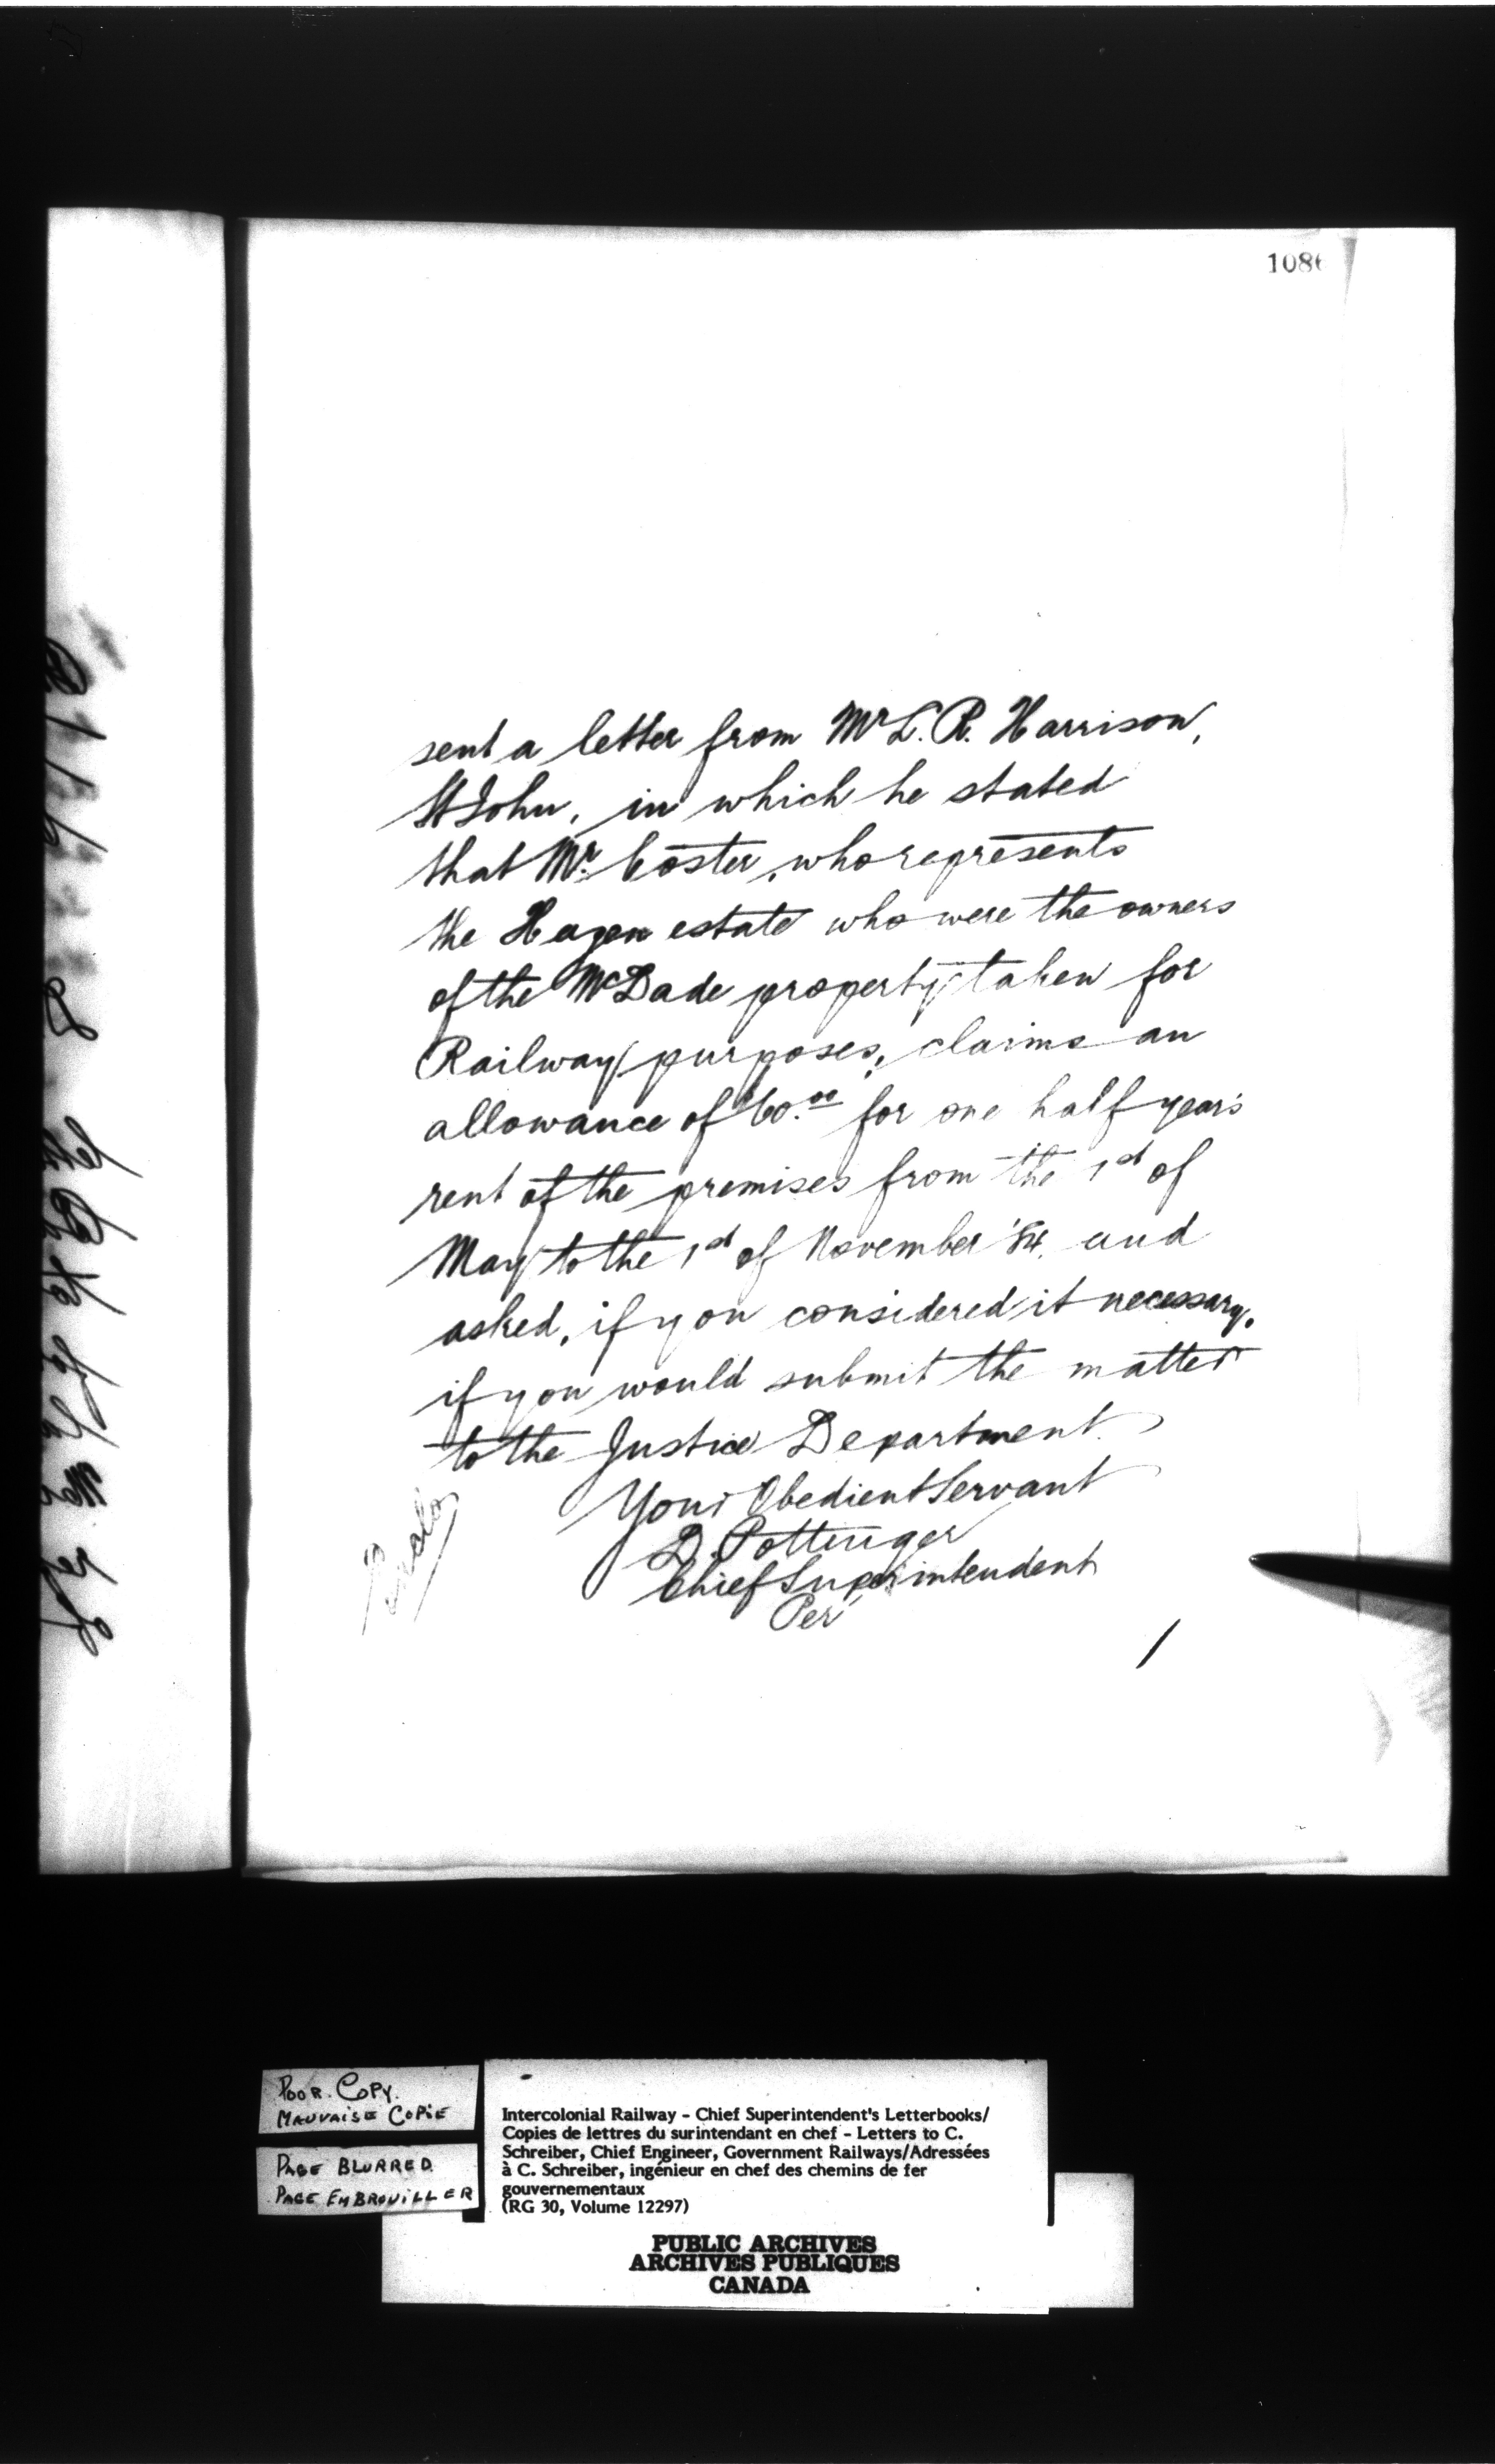 1086
sent a letter from Mr L. R. Harrison,
St John, in which he stated
that Mr. Coster, who represents
the Hazen estate who were the owners
of the McDade property taken for
Railway purposes, claims an
allowance of $60.00 for one half year's
rent of the premises from the 1st of
May to the 1st of November '84, and
asked, if you considered it necessary,
if you would submit the matter
to the Justice Department.
Your Obedient Servant
D. Pottinger
Chief Superintendent
Per
POOR COPY.
MAUVAISE COPIE
PAGE BLURRED.
PAGE EMBROUILLER
Intercolonial Railway - Chief Superintendent's Letterbooks/
Copies de lettres du surintendant en chef - Letters to C.
Schreiber, Chief Engineer, Government Railways/Adressées
à C. Schreiber, ingénieur en chef des chemins de fer
gouvernementaux
(RG 30, Volume 12297)
PUBLIC ARCHIVES
ARCHIVES PUBLIQUES
CANADA